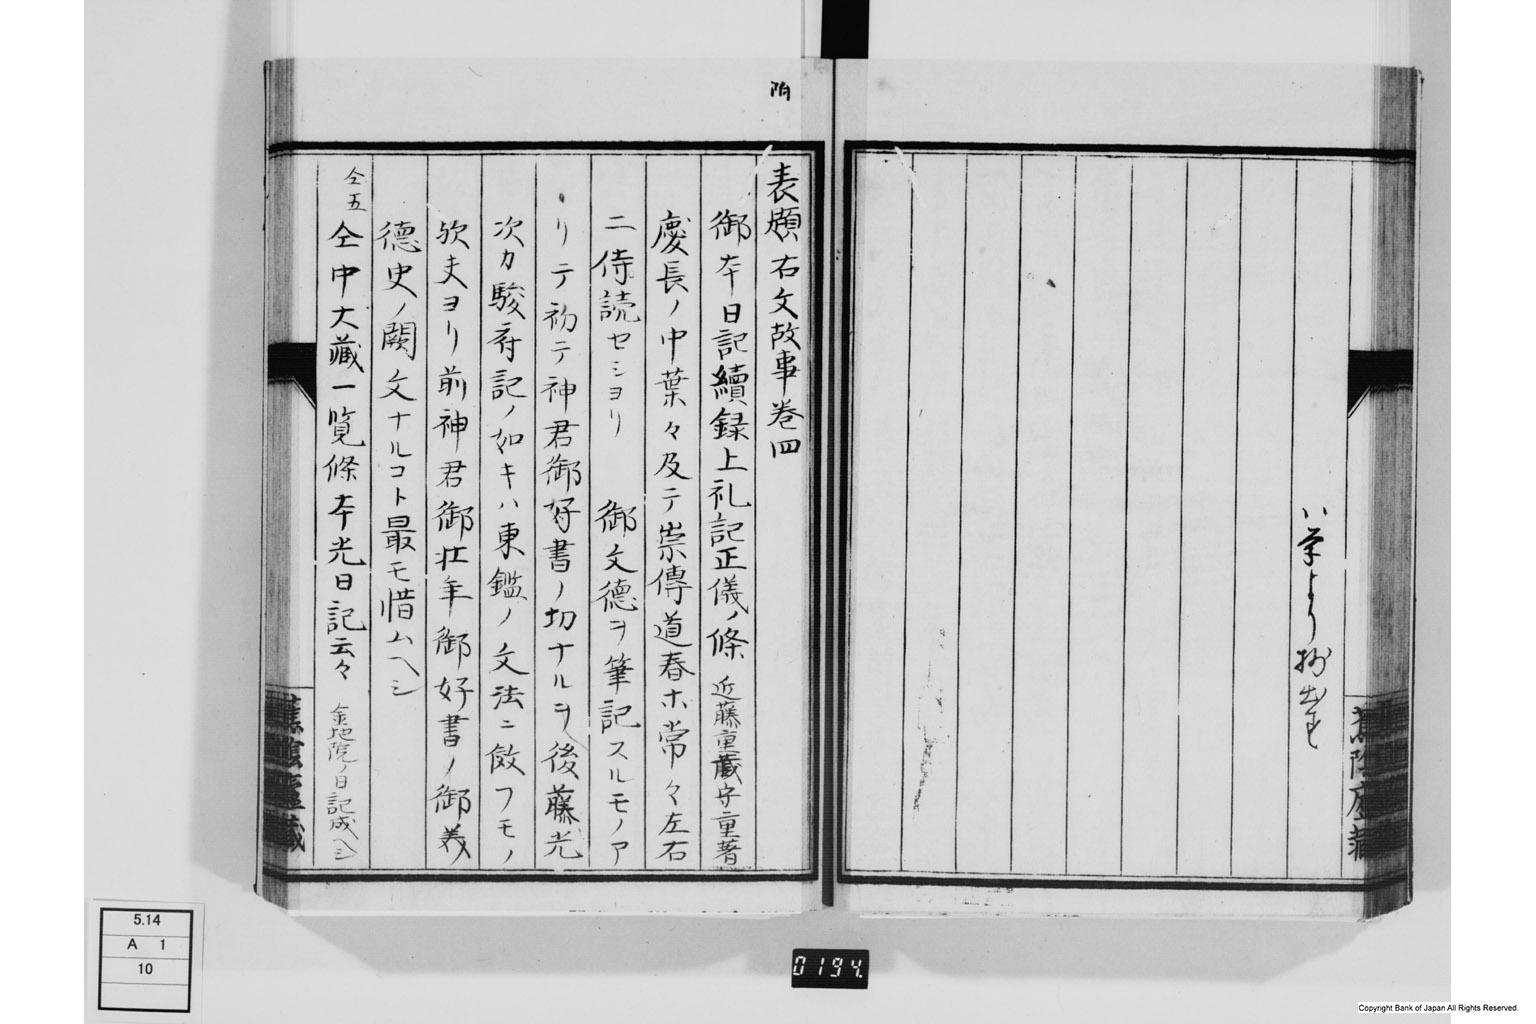 ハ筆より抄出す
蕉陰廬蔵
附
表題右文故事巻四
御本日記續録上礼記正儀ノ條 近藤重蔵守重著
慶長ノ中葉々及テ崇傳道春ホ常々左右
ニ侍読セシヨリ 御文德ヲ筆記スルモノア
リテ初テ神君御好書ノ切ナルヲ後藤光
次カ駿府記ノ如キハ東鑑ノ文法ニ倣フモノ
欤夫ヨリ前神君御壮年御好書ノ御美
德史ノ闕文ナルコト最モ惜ムヘシ
仝五
仝中大藏一覧條本光日記云々 金地院ノ日記成ヘシ
蕉陰廬蔵
5.14
A 1
10
0194.
Copyright Bank of Japan All Rights Reserved.